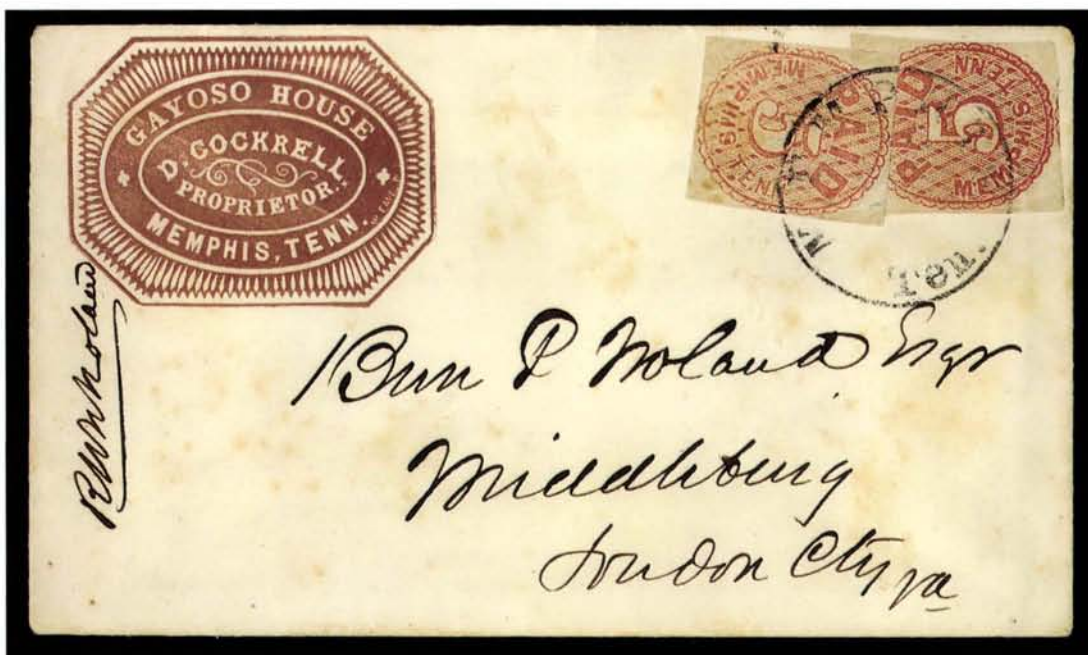 GAYOSO HOUSE
D. COCKRELL
PROPRIETOR.
MEMPHIS, TENN.
PAID
5
MEMPHIS TENN
PAID
5
MEMPHIS TENN
Ten.
RWN Noland
Burr P Noland Esqr
Middleburg
Loudon Cty Va